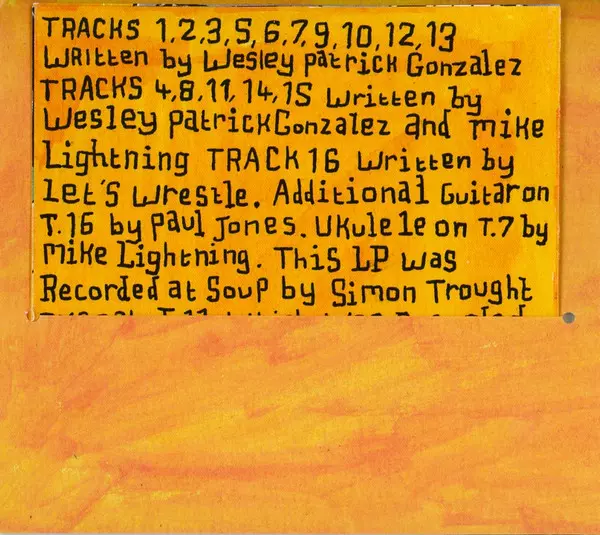 TRACKS 1,2,3,5,6,7,9,10,12,13
Written by Wesley Patrick Gonzalez
TRACKS 4,8,11,14,15 Written by
Wesley Patrick Gonzalez and Mike
Lightning TRACK 16 Written by
Let's Wrestle. Additional Guitar on
T.16 by Paul Jones. Ukulele on T.7 by
Mike Lightning. This LP was
Recorded at Soup by Simon Trought